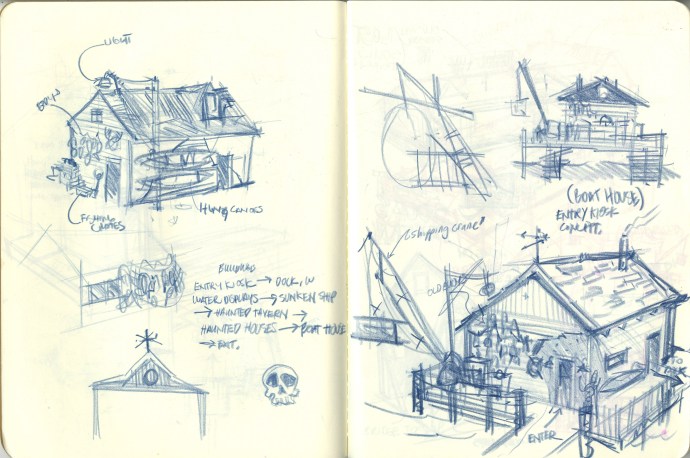 LIGHT
FISHING
CRATES
HUNG CANOES
BUILDING
ENTRY KIOSK → DOCK, IN
WATER DISPLAYS → SUNKEN SHIP
→ HAUNTED TAVERN →
HAUNTED HOUSES → BOAT HOUSE
→ EXIT.
(BOAT HOUSE)
ENTRY KIOSK
CONCEPT.
"shipping crane"
TO
DOCK
ENTER